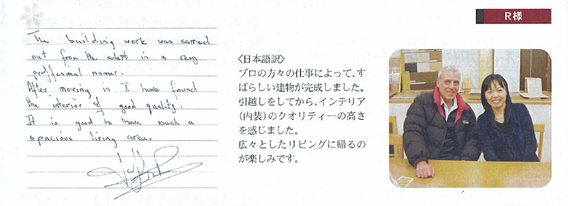 R様
The building work was carried
out from the outset in a very
proffesional maner.
After moving in I have found
the interior of good quality.
It is good to have such a
spacious living area.
〈日本語訳〉
プロの方々の仕事によって、す
ばらしい建物が完成しました。
引越しをしてから、インテリア
(内装)のクオリティーの高さ
を感じました。
広々としたリビングに帰るの
が楽しみです。